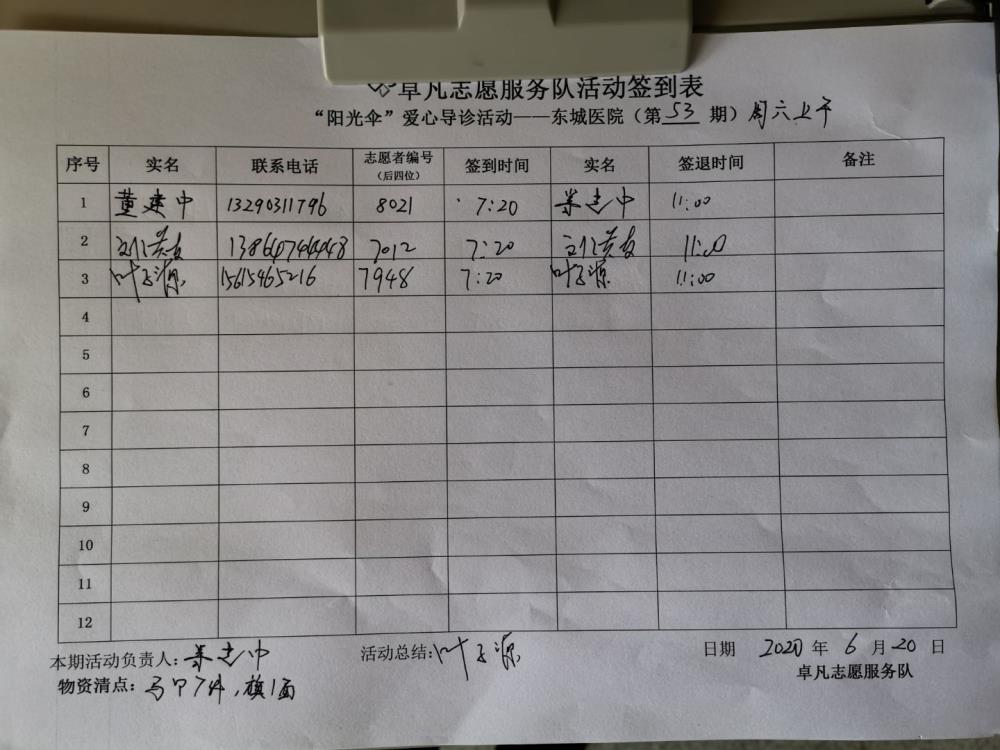 卓凡志愿服务队活动签到表
“阳光伞”爱心导诊活动——东城医院（第 53 期）周六上午
序号 实名 联系电话 志愿者编号（后四位） 签到时间 实名 签退时间 备注
1 董建中 13290311796 8021 7:20 董建中 11:00
2 13864744448 7012 7:20 11:00
3 叶子源 15615465216 7948 7:20 叶子源 11:00
4
5
6
7
8
9
10
11
12
本期活动负责人：董建中 活动总结：叶子源 日期 2020 年 6 月 20 日
物资清点：马甲7件，旗1面 卓凡志愿服务队